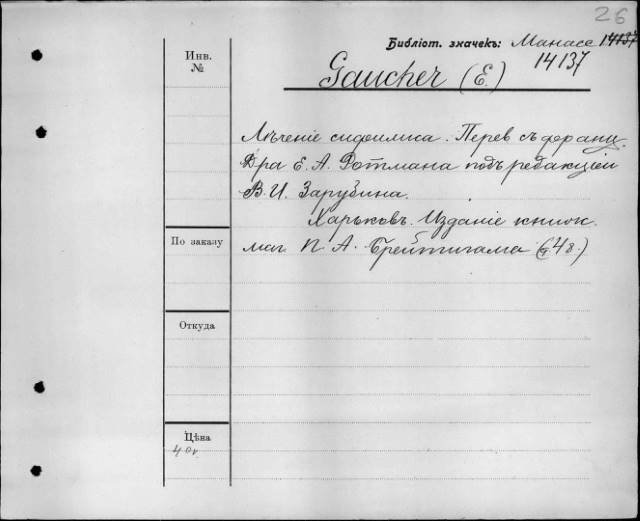 26
Библіот. значекъ: Манасс 14137
14137
Инв.
№
Gaucher (E.)
Лѣченіе сифилиса. Перев съ франц.
Д-ра Е. А. Ротмана подъ редакціей
В. И. Зарубина.
Харьковъ. Изданіе книжн.
маг. П А. Брейтигама
По заказу
Откуда
Цѣна
40к